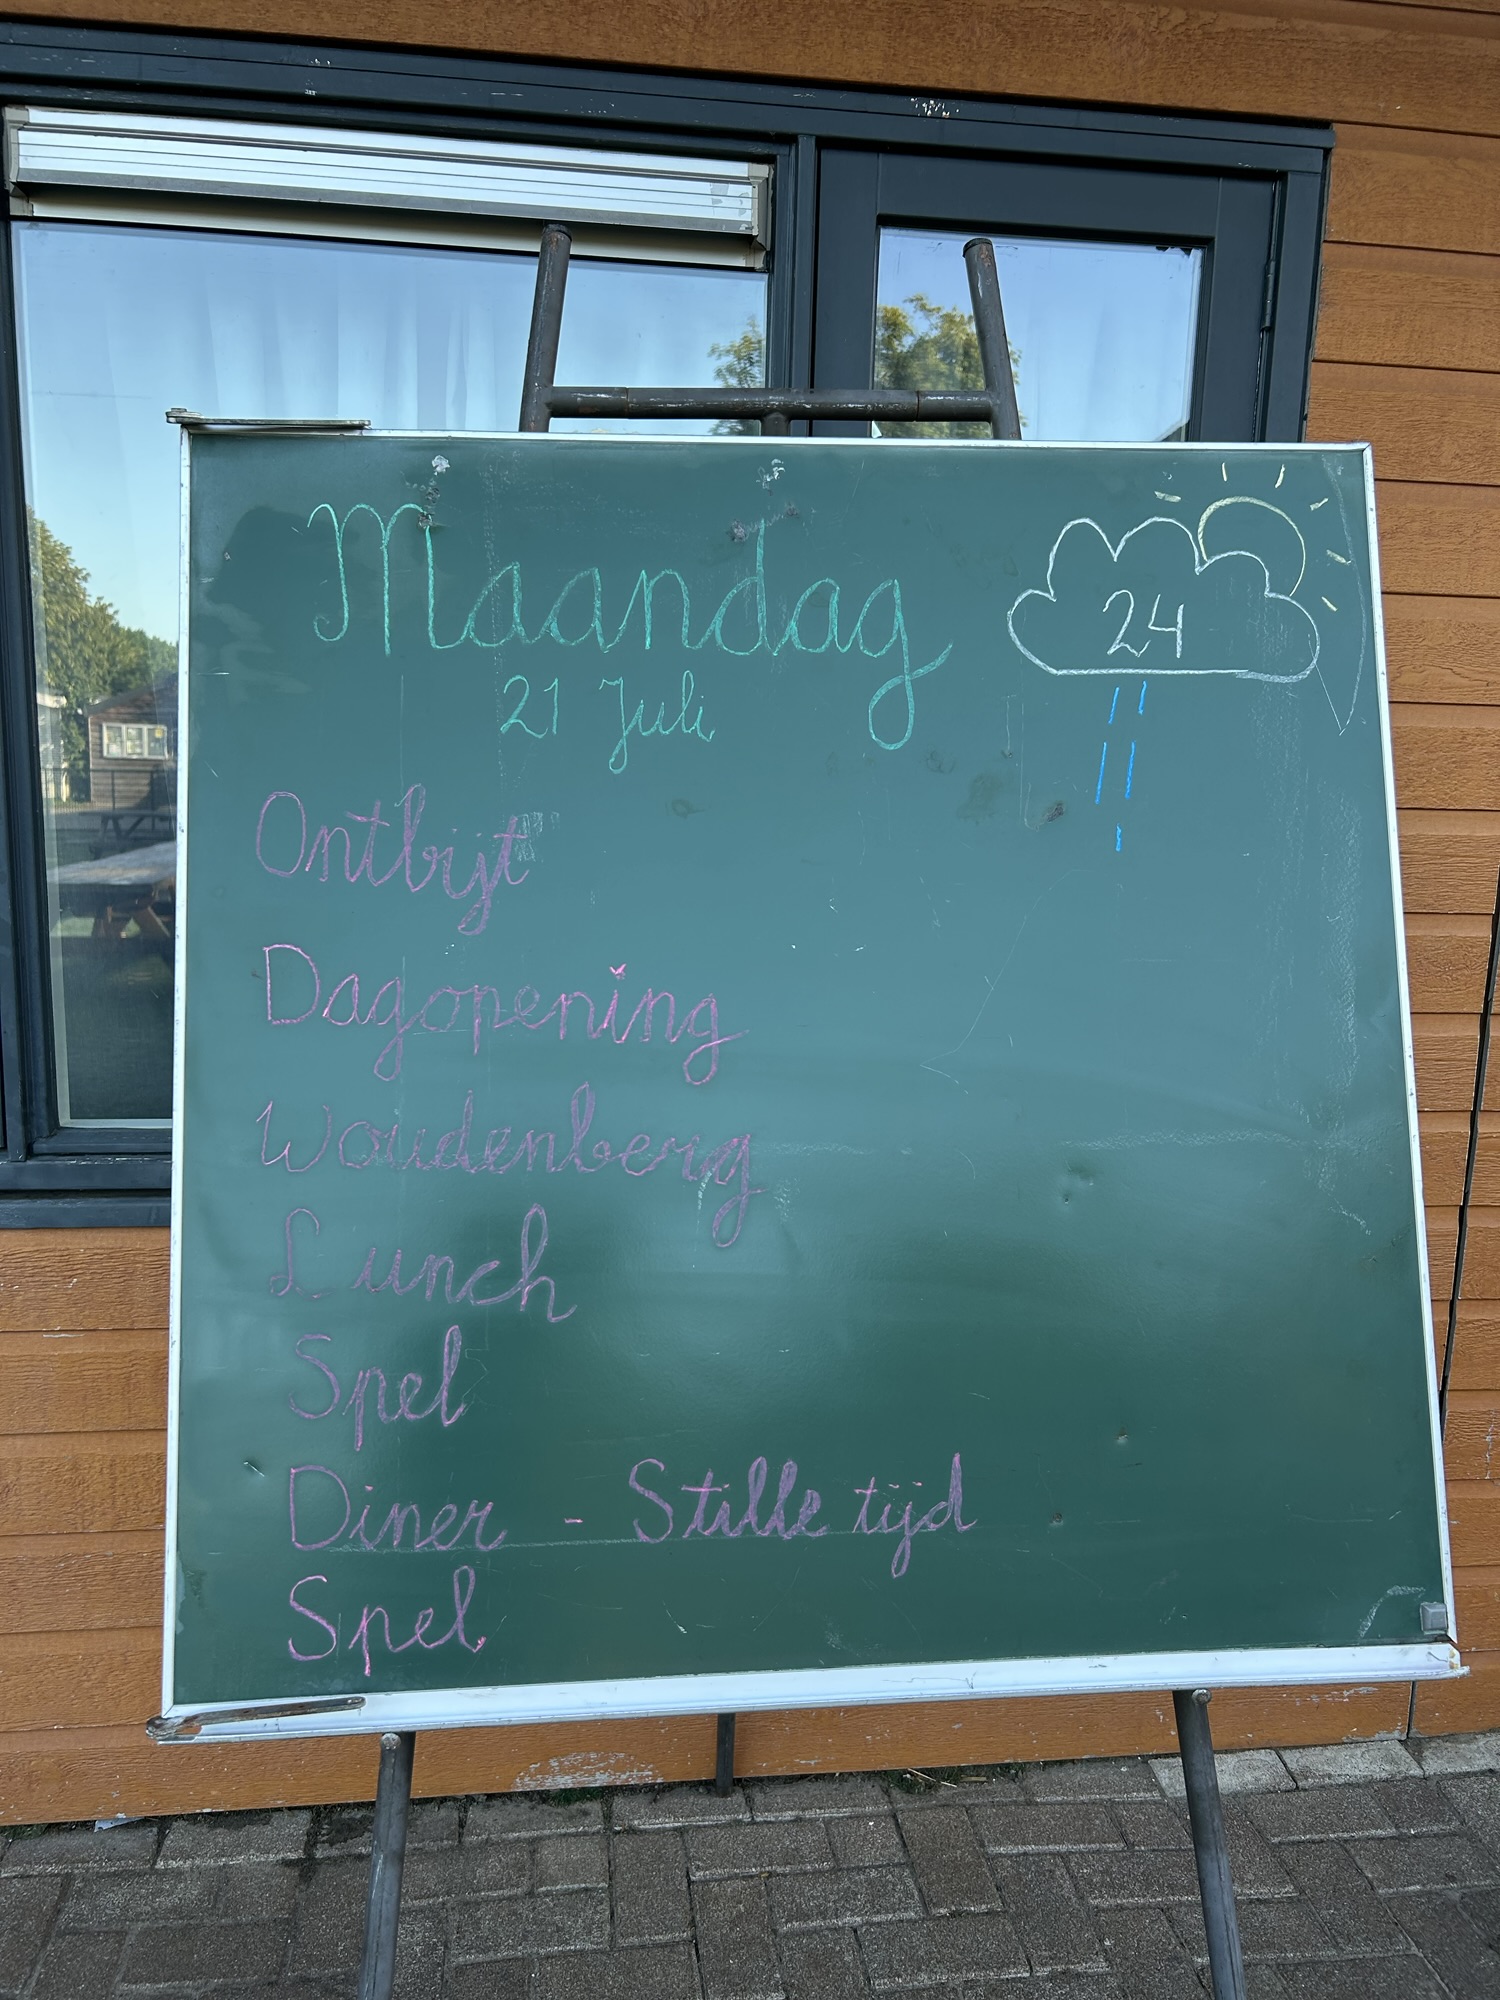 Maandag
24
21 Juli
Ontbijt
Dagopening
Woudenberg
Lunch
Spel
Diner - Stille tijd
Spel